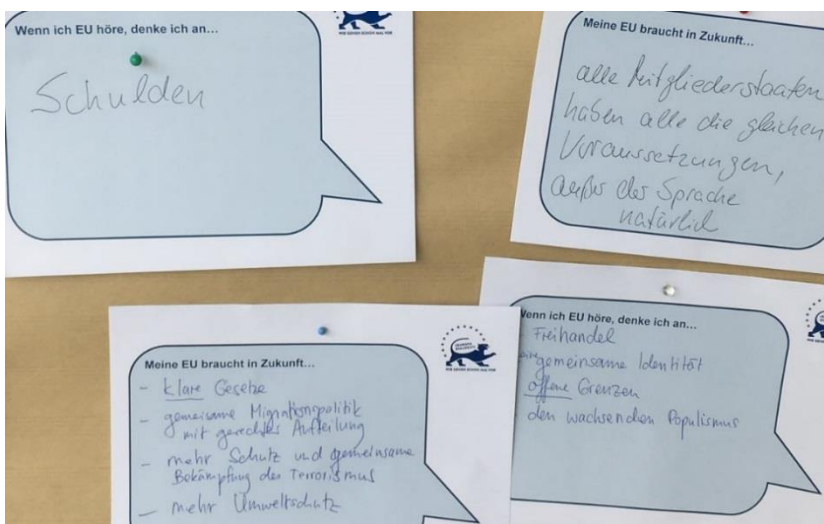 Wenn ich EU höre, denke ich an...
Schulden
WIR GEHEN SCHON MAL VOR
Meine EU braucht in Zukunft...
alle Mitgliederstaaten
haben alle die gleichen
Voraussetzungen,
außer der Sprache
natürlich
Meine EU braucht in Zukunft...
- klare Gesetze
- gemeinsame Migrationspolitik
mit gerechter Aufteilung
- mehr Schutz und gemeinsame
Bekämpfung des Terrorismus
- mehr Umweltschutz
WIR GEHEN SCHON MAL VOR
Wenn ich EU höre, denke ich an...
Freihandel
gemeinsame Identität
offene Grenzen
den wachsenden Populismus